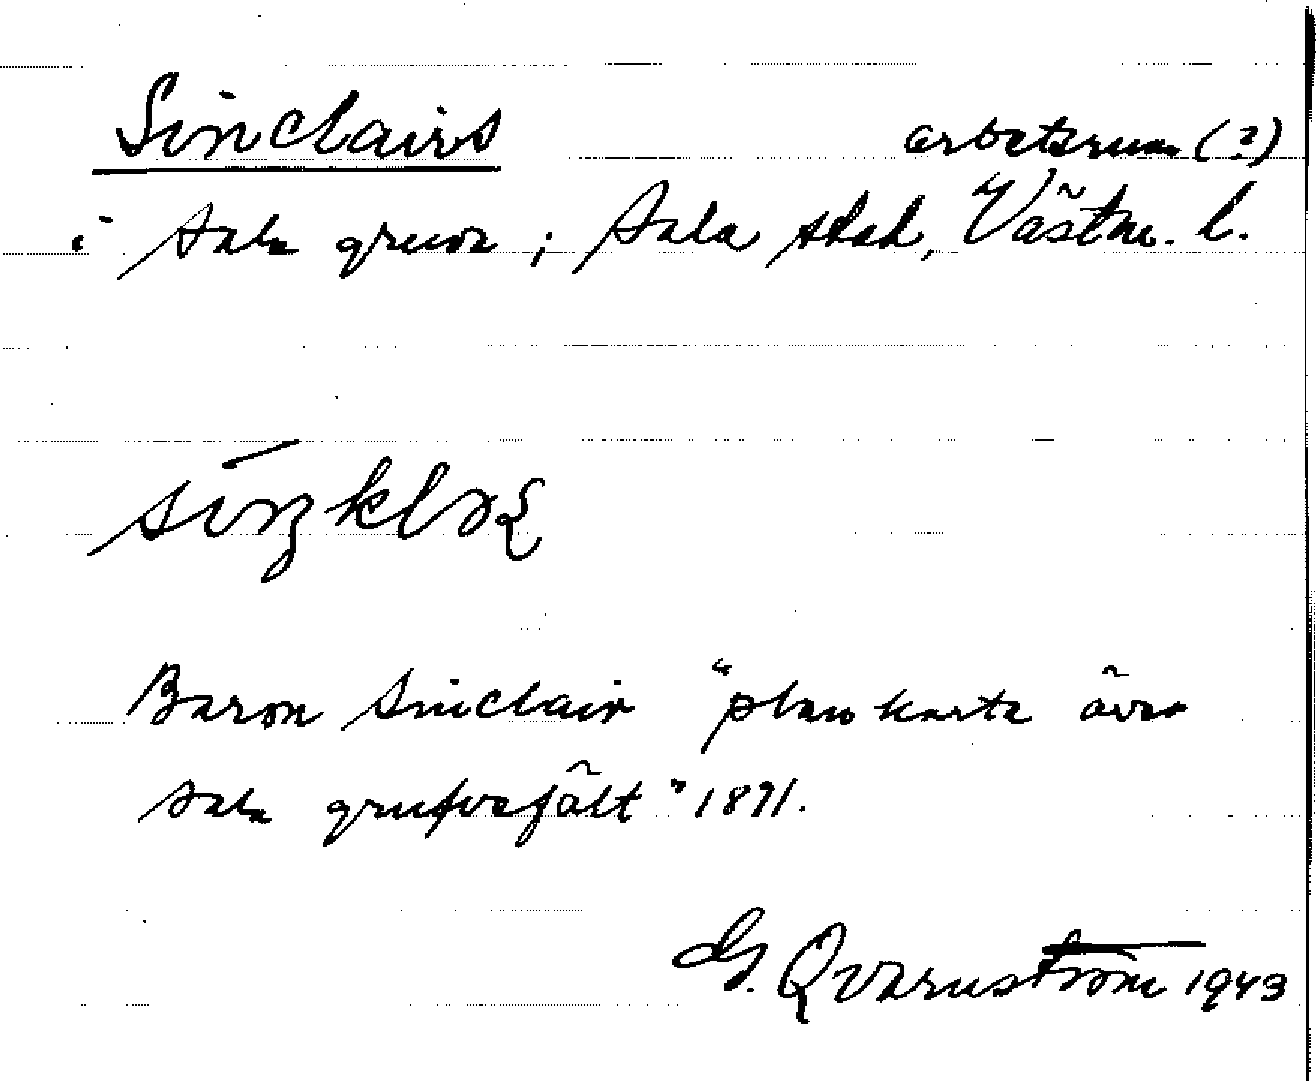 Sinclairs arbetsrum (?)
i Sala gruva; Sala stad, Västm. l.
Baron Sinclair "plankarta över
Sala grufvefält" 1891.
G. Qvarnström 1943